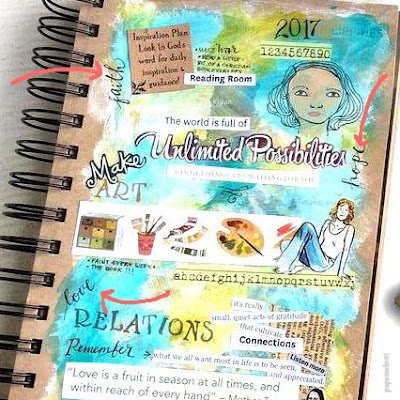 Inspiration Plan
Look to Gods
word for daily
inspiration &
guidance!
faith
2017
1234567890
Reading Room
The world is full of
Unlimited Possibilities
hope
Make
ART
• PAINT EVERY WEEK •
• THE BOOK !!!
abcdefghijklmnopqrstuvwxyz
love
RELATIONS
Remember
it's really
small, quiet acts of gratitude
that cultivate
Connections
Listen more
what we all want most in life is to be seen,
and appreciated.
"Love is a fruit in season at all times, and
within reach of every hand" ~ Mother T